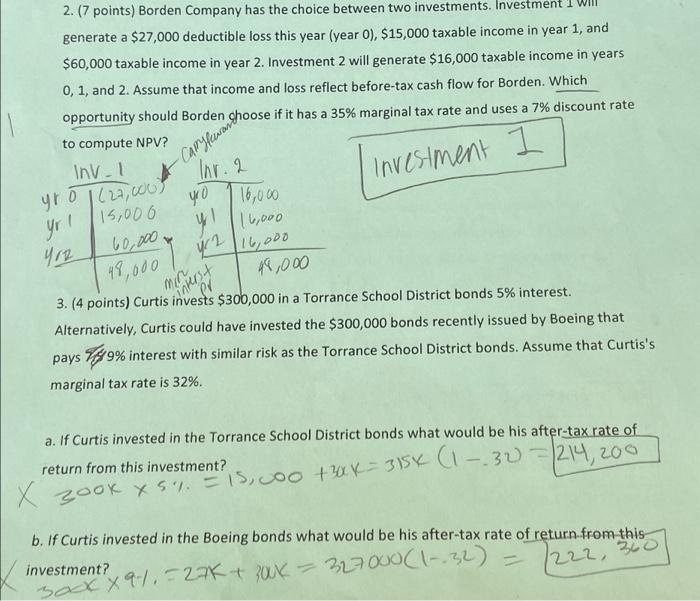 2. (7 points) Borden Company has the choice between two investments. Investment 1 will
generate a $27,000 deductible loss this year (year 0), $15,000 taxable income in year 1, and
$60,000 taxable income in year 2. Investment 2 will generate $16,000 taxable income in years
0, 1, and 2. Assume that income and loss reflect before-tax cash flow for Borden. Which
opportunity should Borden choose if it has a 35% marginal tax rate and uses a 7% discount rate
to compute NPV?
Investment 1
Inv-1 Inv. 2
yr 0 (27,000) yr0 16,000
yr 1 15,000 y1 16,000
yr2 60,000 yr2 16,000
48,000 48,000
3. (4 points) Curtis invests $300,000 in a Torrance School District bonds 5% interest.
Alternatively, Curtis could have invested the $300,000 bonds recently issued by Boeing that
pays 9% interest with similar risk as the Torrance School District bonds. Assume that Curtis's
marginal tax rate is 32%.
a. If Curtis invested in the Torrance School District bonds what would be his after-tax rate of
return from this investment?
X 300K x 5%. = 15,000 + 300K = 315K (1-.32) = 214,200
b. If Curtis invested in the Boeing bonds what would be his after-tax rate of return from this
investment?
X 300K x 9%. = 27K + 300K = 327000(1-.32) = 222,360